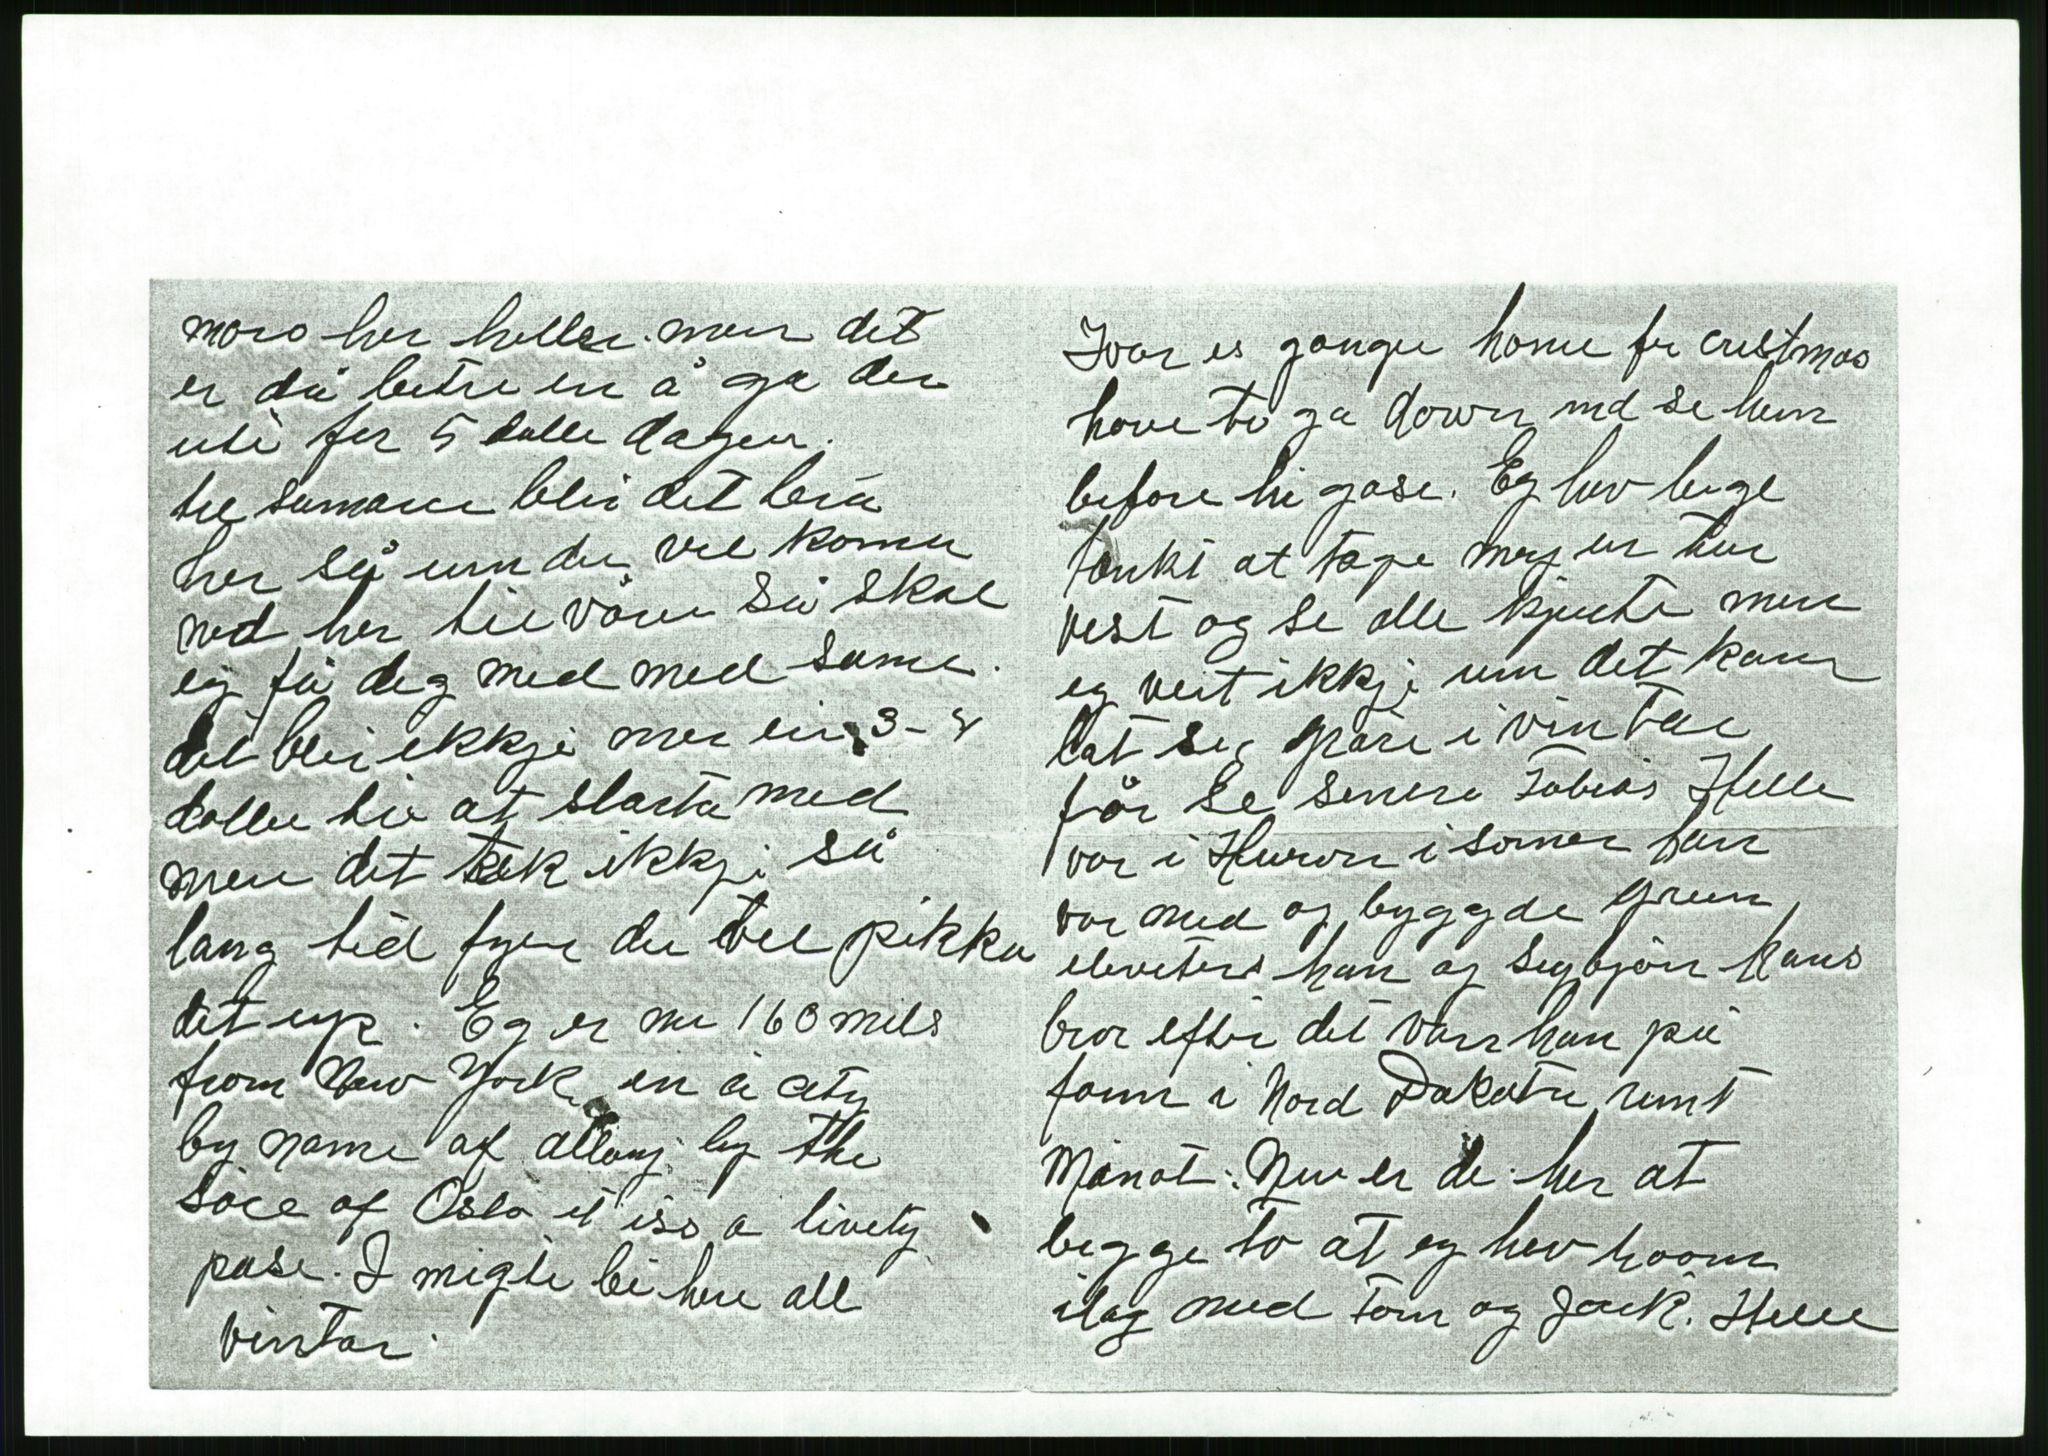 moro her heller. men det
er då betre en å ga der
uti for 5 dalle dagen.
til sumaren blir det bra
her så um du vil komen
ned her til våren så skal
eg få deg med med same.
det blir ikkji mer ein 3-4
daller tie at starta med
men det tek ikkji så
lang tid fyrr du vil pikka
det up. Eg er nu 160 mils
from New York en a city
by name af allbany by the
sice af Oslo it iss a livety
plase. I migte bi here all
vintar.
Ivar es gonge home for crestmas
have to ga down and se him
before hi gose. Eg hev lege
tenkt at tage meg en tur
vest og se alle kjente men
eg veit ikkji um det kan
lat seg gjøre i vintar
får se senere Tobias Helle
var i Huron i somer han
var med og byggde green
eleveters han og Sigbjørn hans
bror efter det var han på
farm i Nord Dakota runt
Minot. Nu er de her at
begge to at eg hev room
ilag med Tom og Jack. Helle